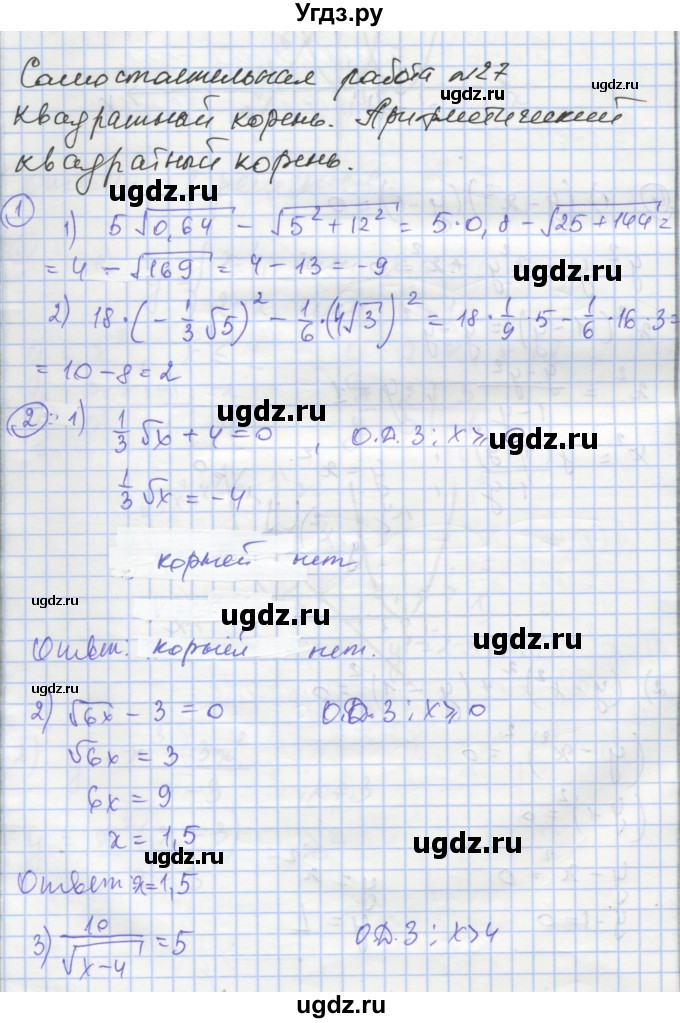 Угдз.ру
Самостоятельная работа №27
Квадратный корень. Арифметический
квадратный корень.
ugdz.ru ugdz.ru
1 1) 5√0,64 - √(5² + 12²) = 5·0,8 - √(25 + 144) =
= 4 - √169 = 4 - 13 = -9
ugdz.ru
2) 18·(-1/3 √5)² - 1/6·(4√3)² = 18·1/9·5 - 1/6·16·3 =
= 10 - 8 = 2
ugdz.ru
2: 1) 1/3 √x + 4 = 0, О.Д.З: x ≥
ugdz.ru
1/3 √x = -4
корней нет
ugdz.ru ugdz.ru ugdz.ru
Ответ: корней нет.
ugdz.ru
2) √6x - 3 = 0 О.Д.З: x ≥ 0
√6x = 3
6x = 9
x = 1,5
ugdz.ru ugdz.ru
Ответ: x = 1,5
3) 10/√(x-4) = 5 О.Д.З: x > 4
ugdz.ru
ugdz.ru